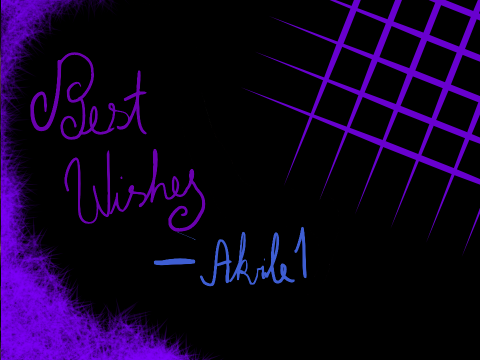 Best
Wishes
— Akvile1